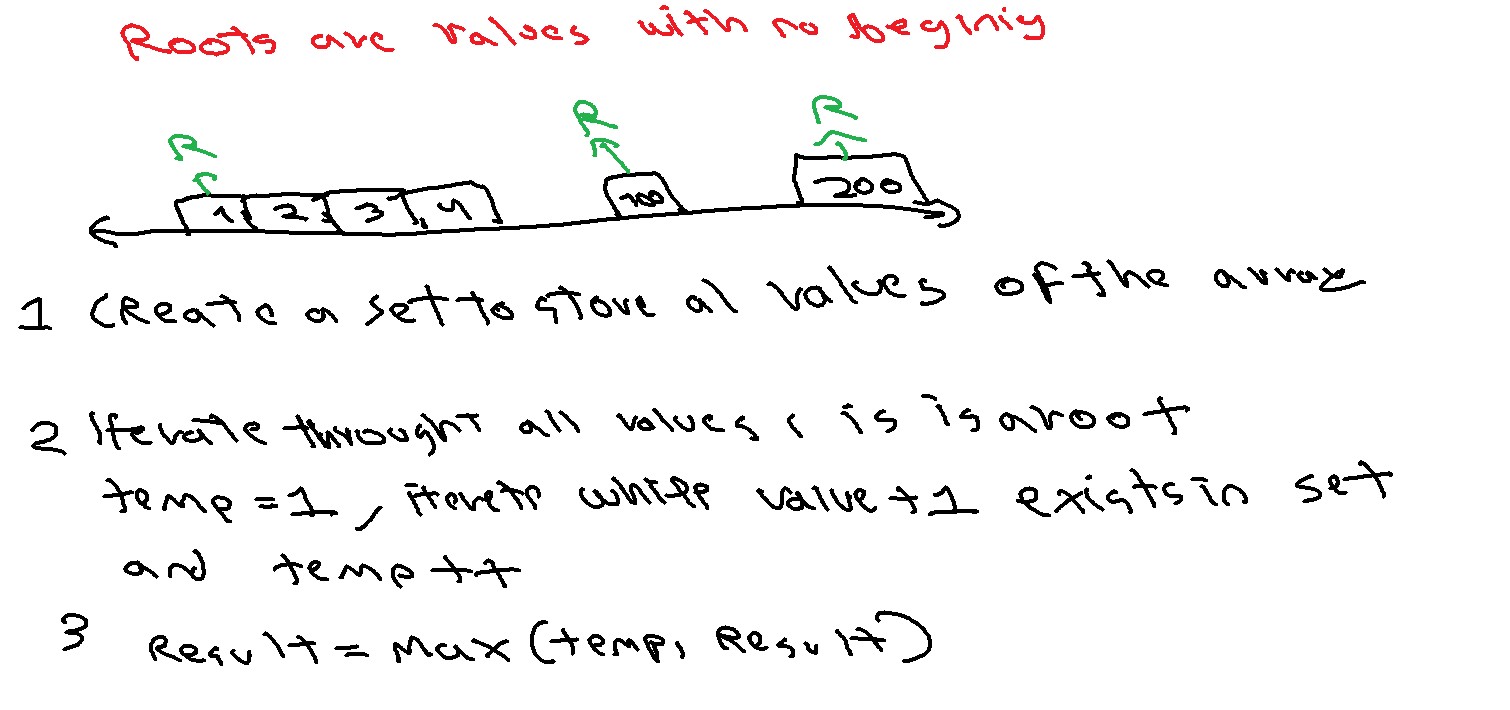 Roots are values with no beginiy
R R R
1 2 3 4 100 200
1 CReate a set to store al values of the array
2 Iterate throught all values, is is a root
temp = 1, iterate while value + 1 exists in set
and temp ++
3 Result = Max (temp, Result)